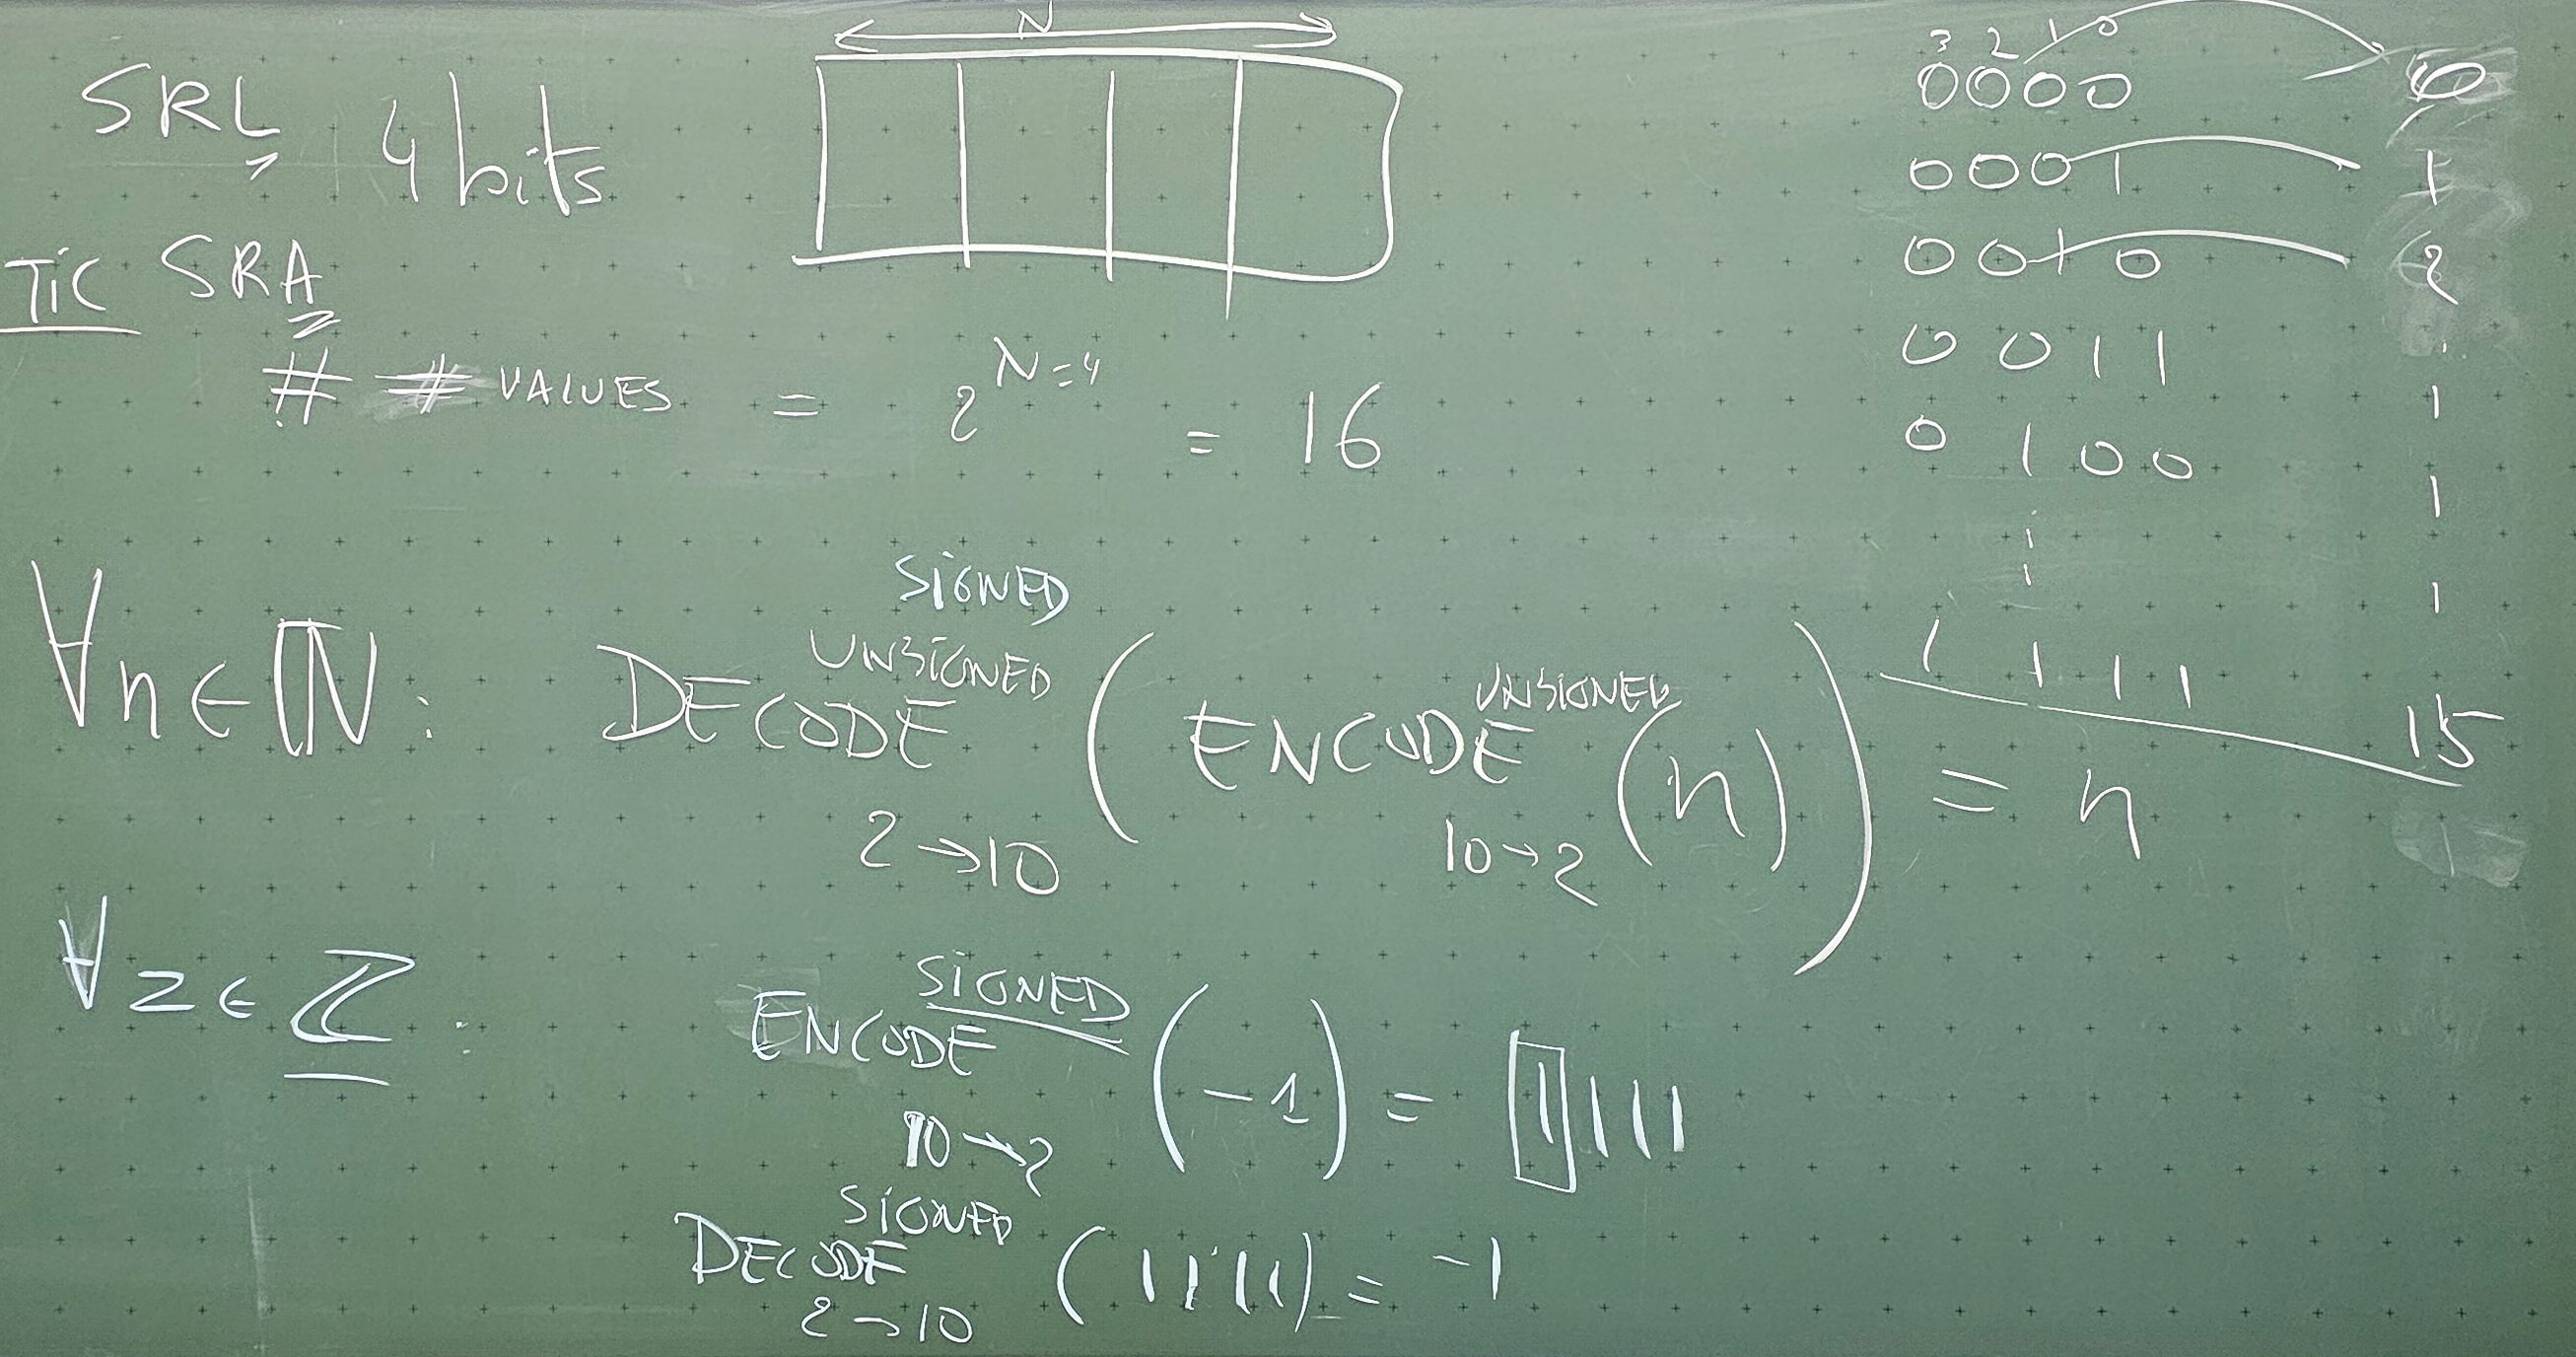 N
SRL 4 bits
TiC SRA
# # VALUES = 2^N=4 = 16
3 2 1 0
0000 0
0001 1
0010 2
0011
0100
1111 15
SIGNED
∀n∈ℕ: DECODE UNSIGNED 2→10 (ENCODE UNSIGNED 10→2 (n)) = n
∀z∈ℤ: ENCODE SIGNED 10→2 (-1) = 1111
DECODE SIGNED 2→10 (1111) = -1